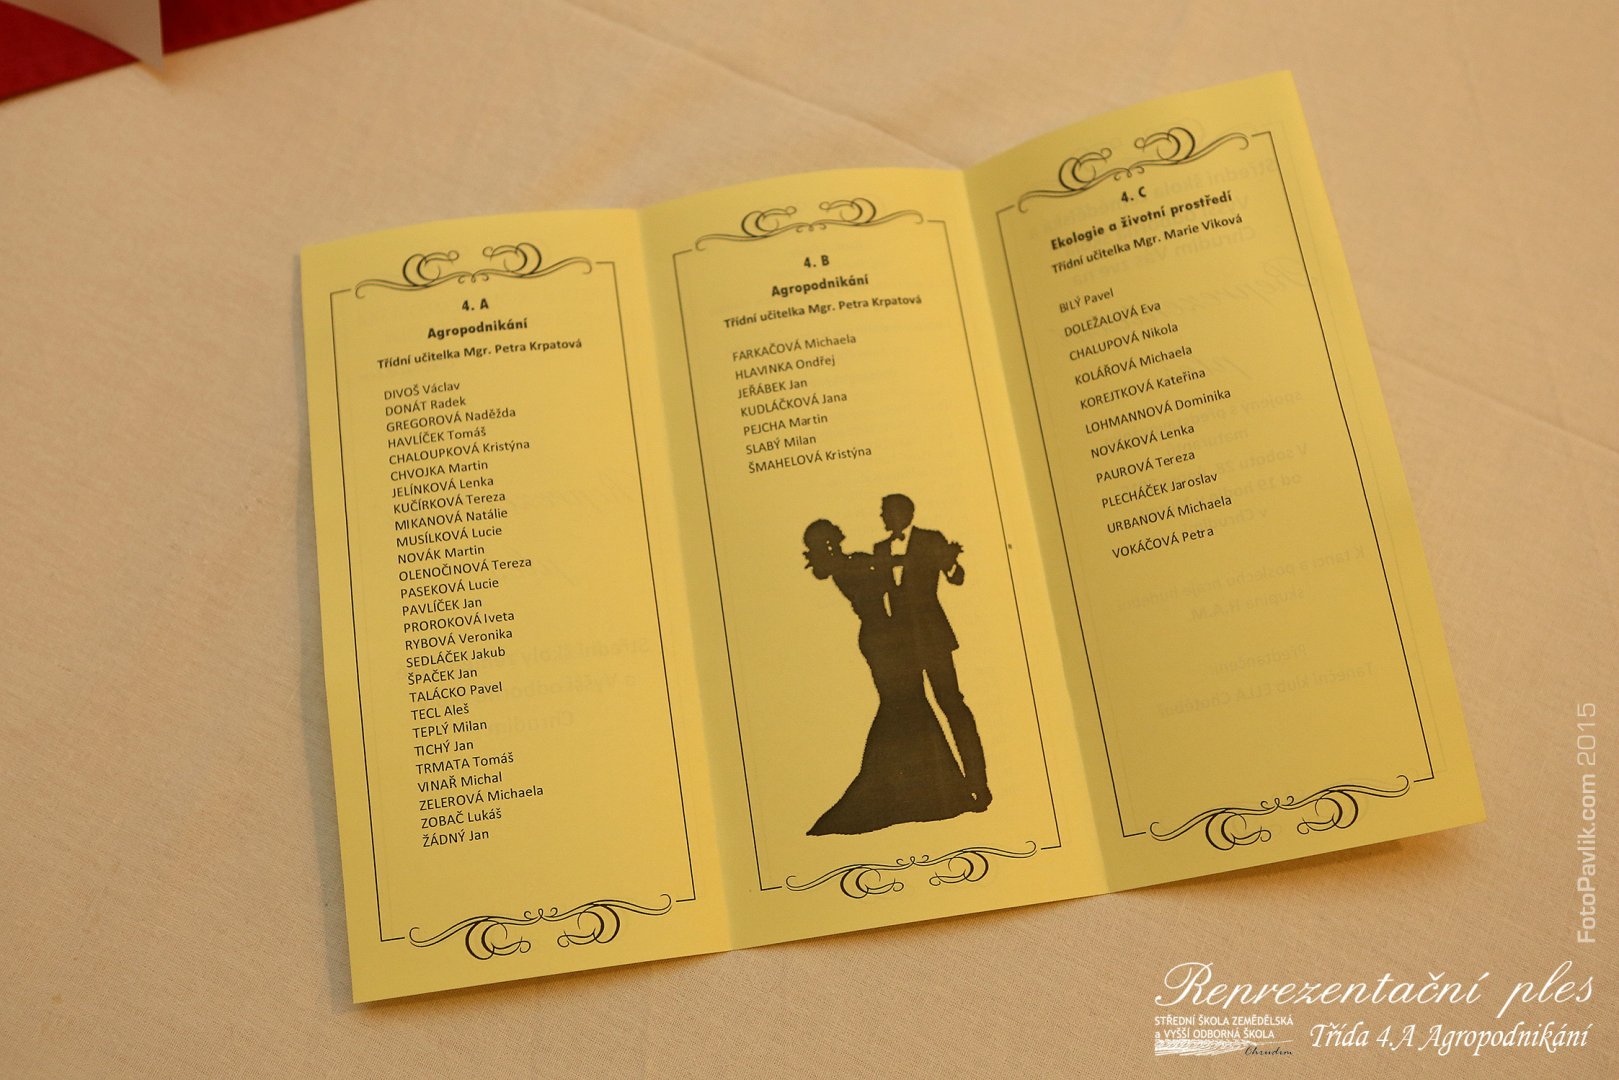 4. A
Agropodnikání
Třídní učitelka Mgr. Petra Krpatová
DIVOŠ Václav
DONÁT Radek
GREGOROVÁ Naděžda
HAVLÍČEK Tomáš
CHALOUPKOVÁ Kristýna
CHVOJKA Martin
JELÍNKOVÁ Lenka
KUČÍRKOVÁ Tereza
MIKANOVÁ Natálie
MUSÍLKOVÁ Lucie
NOVÁK Martin
OLENOČINOVÁ Tereza
PASEKOVÁ Lucie
PAVLÍČEK Jan
PROROKOVÁ Iveta
RYBOVÁ Veronika
SEDLÁČEK Jakub
ŠPAČEK Jan
TALÁCKO Pavel
TECL Aleš
TEPLÝ Milan
TICHÝ Jan
TRMATA Tomáš
VINAŘ Michal
ZELEROVÁ Michaela
ZOBAČ Lukáš
ŽÁDNÝ Jan
4. B
Agropodnikání
Třídní učitelka Mgr. Petra Krpatová
FARKAČOVÁ Michaela
HLAVINKA Ondřej
JEŘÁBEK Jan
KUDLÁČKOVÁ Jana
PEJCHA Martin
SLABÝ Milan
ŠMAHELOVÁ Kristýna
4. C
Ekologie a životní prostředí
Třídní učitelka Mgr. Marie Víková
BILÝ Pavel
DOLEŽALOVÁ Eva
CHALUPOVÁ Nikola
KOLÁŘOVÁ Michaela
KOREJTKOVÁ Kateřina
LOHMANNOVÁ Dominika
NOVÁKOVÁ Lenka
PAUROVÁ Tereza
PLECHÁČEK Jaroslav
URBANOVÁ Michaela
VOKÁČOVÁ Petra
FotoPavlik.com 2015
Reprezentační ples
STŘEDNÍ ŠKOLA ZEMĚDĚLSKÁ
a VYŠŠÍ ODBORNÁ ŠKOLA
Chrudim
Třída 4.A Agropodnikání